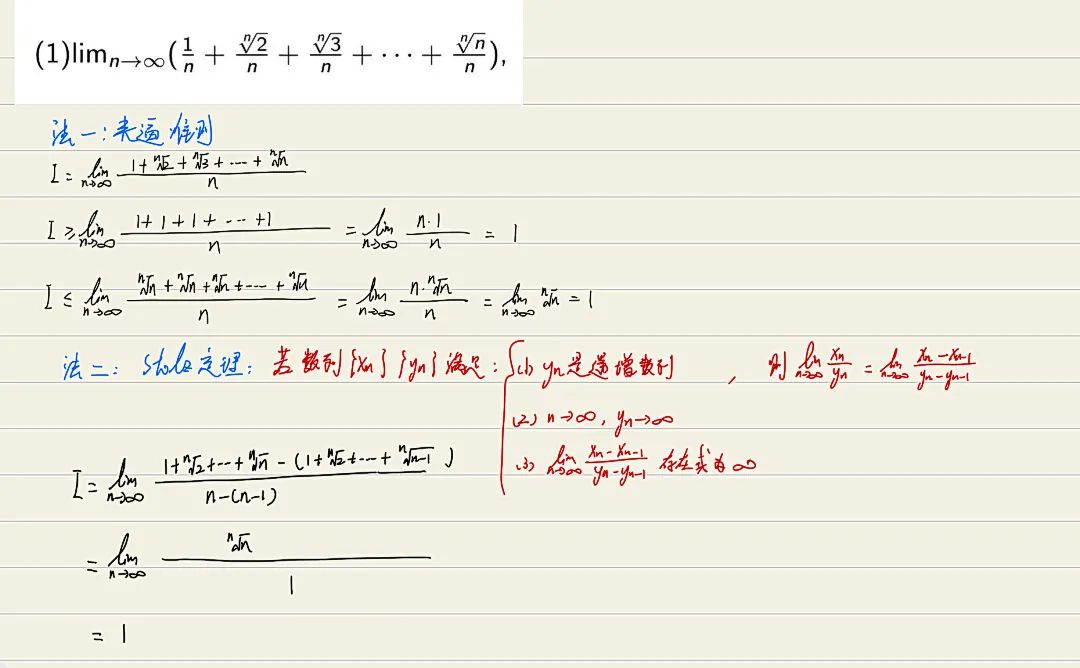 (1)lim_{n→∞}(1/n + ⁿ√2/n + ⁿ√3/n + ⋯ + ⁿ√n/n),
法一:夹逼准则
I = lim_{n→∞} (1+ⁿ√2+ⁿ√3+⋯+ⁿ√n)/n
I ≥ lim_{n→∞} (1+1+1+⋯+1)/n = lim_{n→∞} (n·1)/n = 1
I ≤ lim_{n→∞} (ⁿ√n+ⁿ√n+ⁿ√n+⋯+ⁿ√n)/n = lim_{n→∞} (n·ⁿ√n)/n = lim_{n→∞} ⁿ√n = 1
法二: Stolz定理: 若数列{xn}{yn}满足: {(1) yn是递增数列 , 则 lim_{n→∞} xn/yn = lim_{n→∞} (xn-xn-1)/(yn-yn-1)
(2) n→∞, yn→∞
(3) lim_{n→∞} (xn-xn-1)/(yn-yn-1) 存在或为∞
I = lim_{n→∞} (1+ⁿ√2+⋯+ⁿ√n-(1+ⁿ√2+⋯+ⁿ√n-1))/(n-(n-1))
= lim_{n→∞} ⁿ√n/1
= 1